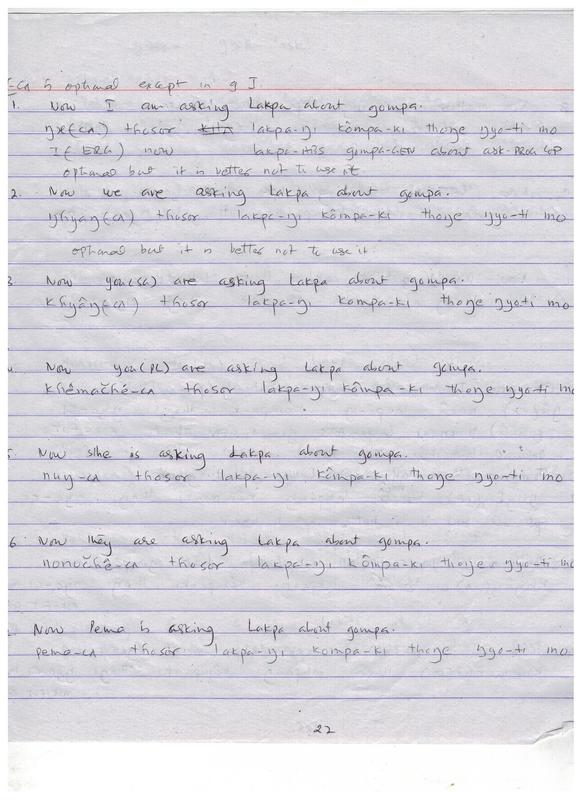 -ca is optional except in g I
1. Now I am asking Lakpa about gompa.
ŋx(ca) thosor lakpa-ŋi kômpa-ki thoŋe ŋyo-ti mo
I (ERG) now lakpa-ABS gompa-GEN about ask-PROG COP
optional but it is better not to use it
2. Now we are asking Lakpa about gompa.
ŋhyaŋ(ca) thosor lakpa-ŋi kômpa-ki thoŋe ŋyo-ti mo
optional but it is better not to use it
3 Now you(SG) are asking Lakpa about gompa.
khyâŋ(ca) thosor lakpa-ŋi kompa-ki thoŋe ŋyo-ti mo
Now you(PL) are asking Lakpa about gompa.
khêmačhé-ca thosor lakpa-ŋi kômpa-ki thoŋe ŋyo-ti mo
Now s/he is asking Lakpa about gompa.
nuŋ-ca thosor lakpa-ŋi kômpa-ki thoŋe ŋyo-ti mo
6. Now they are asking Lakpa about gompa.
nonučhê-ca thosor lakpa-ŋi kômpa-ki thoŋe ŋyo-ti mo
Now Pema is asking Lakpa about gompa.
pema-ca thosor lakpa-ŋi kompa-ki thoŋe ŋyo-ti mo
22